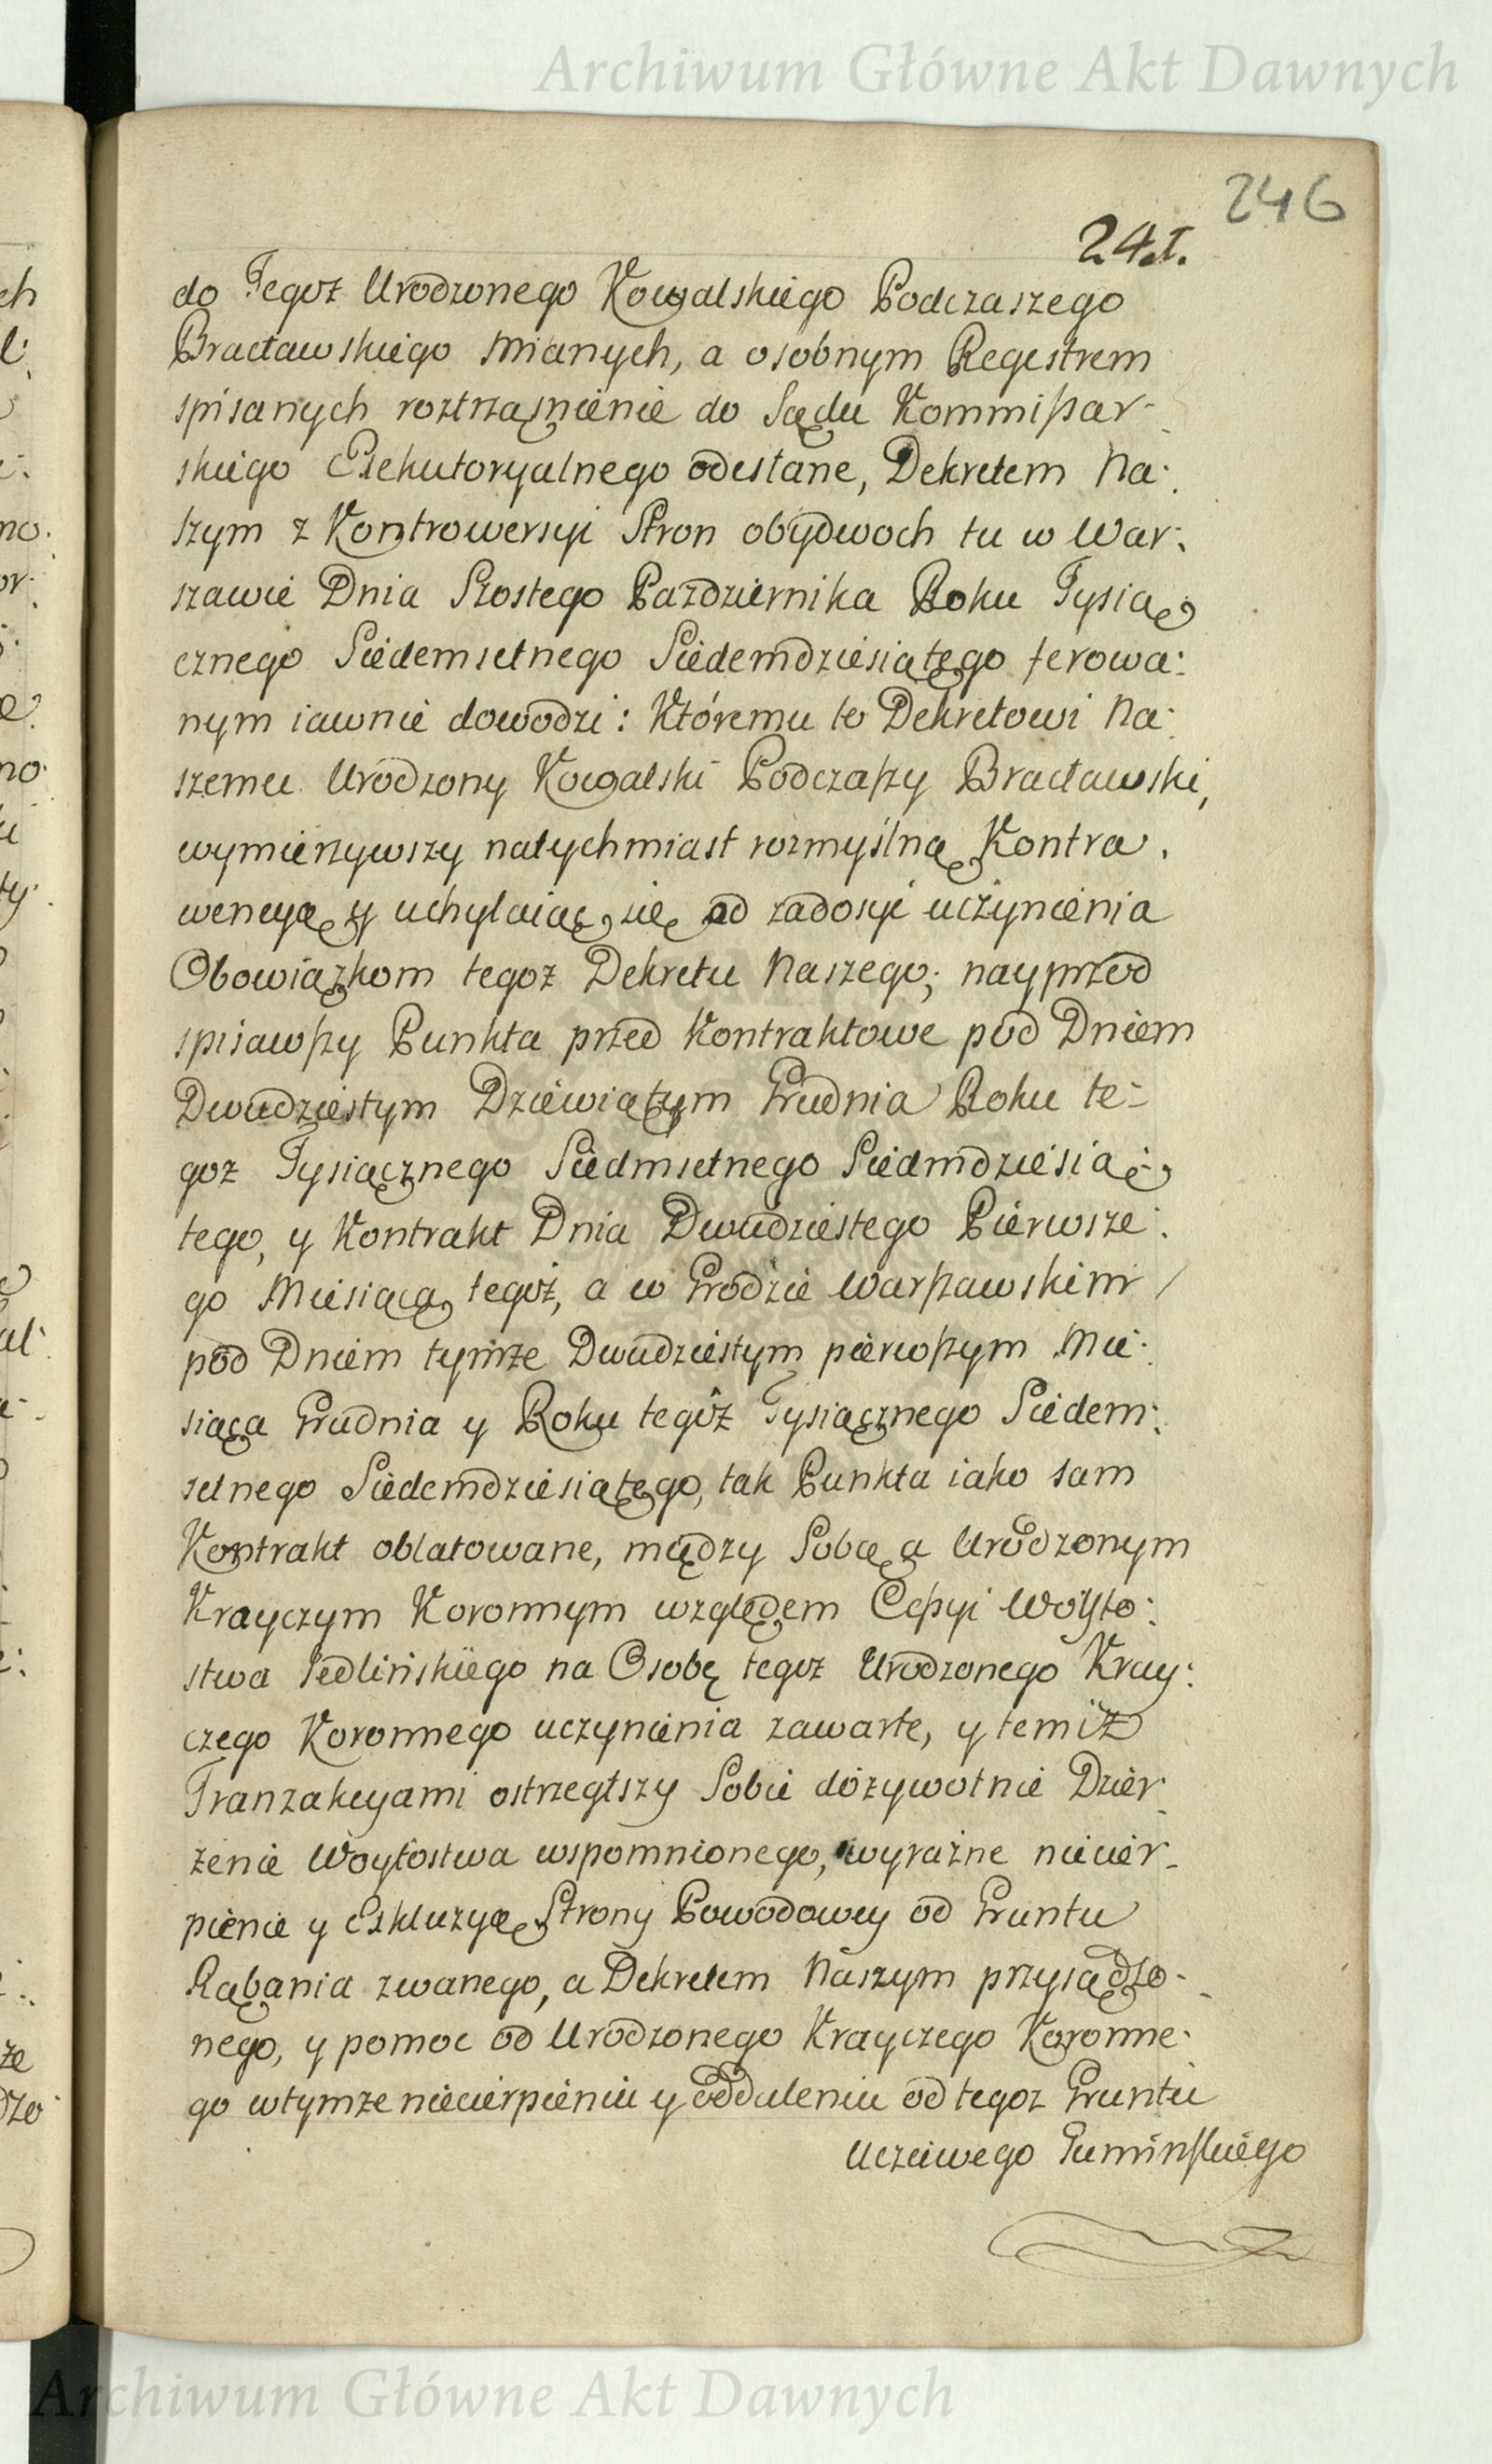 Archiwum Główne Akt Dawnych
246
241.
do Tegoż Urodzonego Kowalskiego Podczaszego
Bracławskiego mianych, a osobnym Regestrem
spisanych roztrząśnienie do Sądu Kommißar-
skiego Exekutoryalnego odesłane, Dekretem Na:
szym z Kontrowersyi Stron obydwoch tu w War:
szawie Dnia Szostego Pazdziernika Roku Tysią
cznego Siedemsetnego Siedemdziesiątego ferowa:
nym iawnie dowodzi: Któremu to Dekretowi Na:
szemu Urodzony Kowalski Podczaßzy Bracławski,
wymierzywszy natychmiast rozmyślną Kontra.
wencyą y uchylaiąc się od zadosyć uczynienia
Obowiązkom tegoż Dekretu Naszego; nayprzod
spisawßzy Punkta przed Kontraktowe pod Dniem
Dwudziestym Dziewiątym Grudnia Roku te-
goż Tysiącznego Siedmsetnego Siedmdziesią-
tego, y Kontrakt Dnia Dwudziestego Pierwsze:
go Miesiąca tegoż, a w Grodzie Warßzawskim
pod Dniem tymże Dwudziestym pierwßzym Mie:
siąca Grudnia y Roku tegoż Tysiącznego Siedem:
setnego Siedemdziesiątego, tak Punkta iako sam
Kontrakt oblatowane, między Sobą a Urodzonym
Krayczym Koronnym względem Ceßyi Woyto:
stwa Jedlińskiego na Osobę tegoż Urodzonego Kray:
czego Koronnego uczynienia zawarte, y temiż
Tranzakcyami ostrzegłszy Sobie dożywotnie Dzier:
żenie Woytostwa wspomnionego, wyraźne niecier-
pienie y Exkluzyą Strony Powodowey od Gruntu
Rąbania zwanego, a Dekretem Naszym przysądzo-
nego, y pomoc od Urodzonego Krayczego Koronne:
go wtymże niecierpieniu y oddaleniu od tegoż Gruntu
Uczciwego Gumińskiego
Archiwum Główne Akt Dawnych